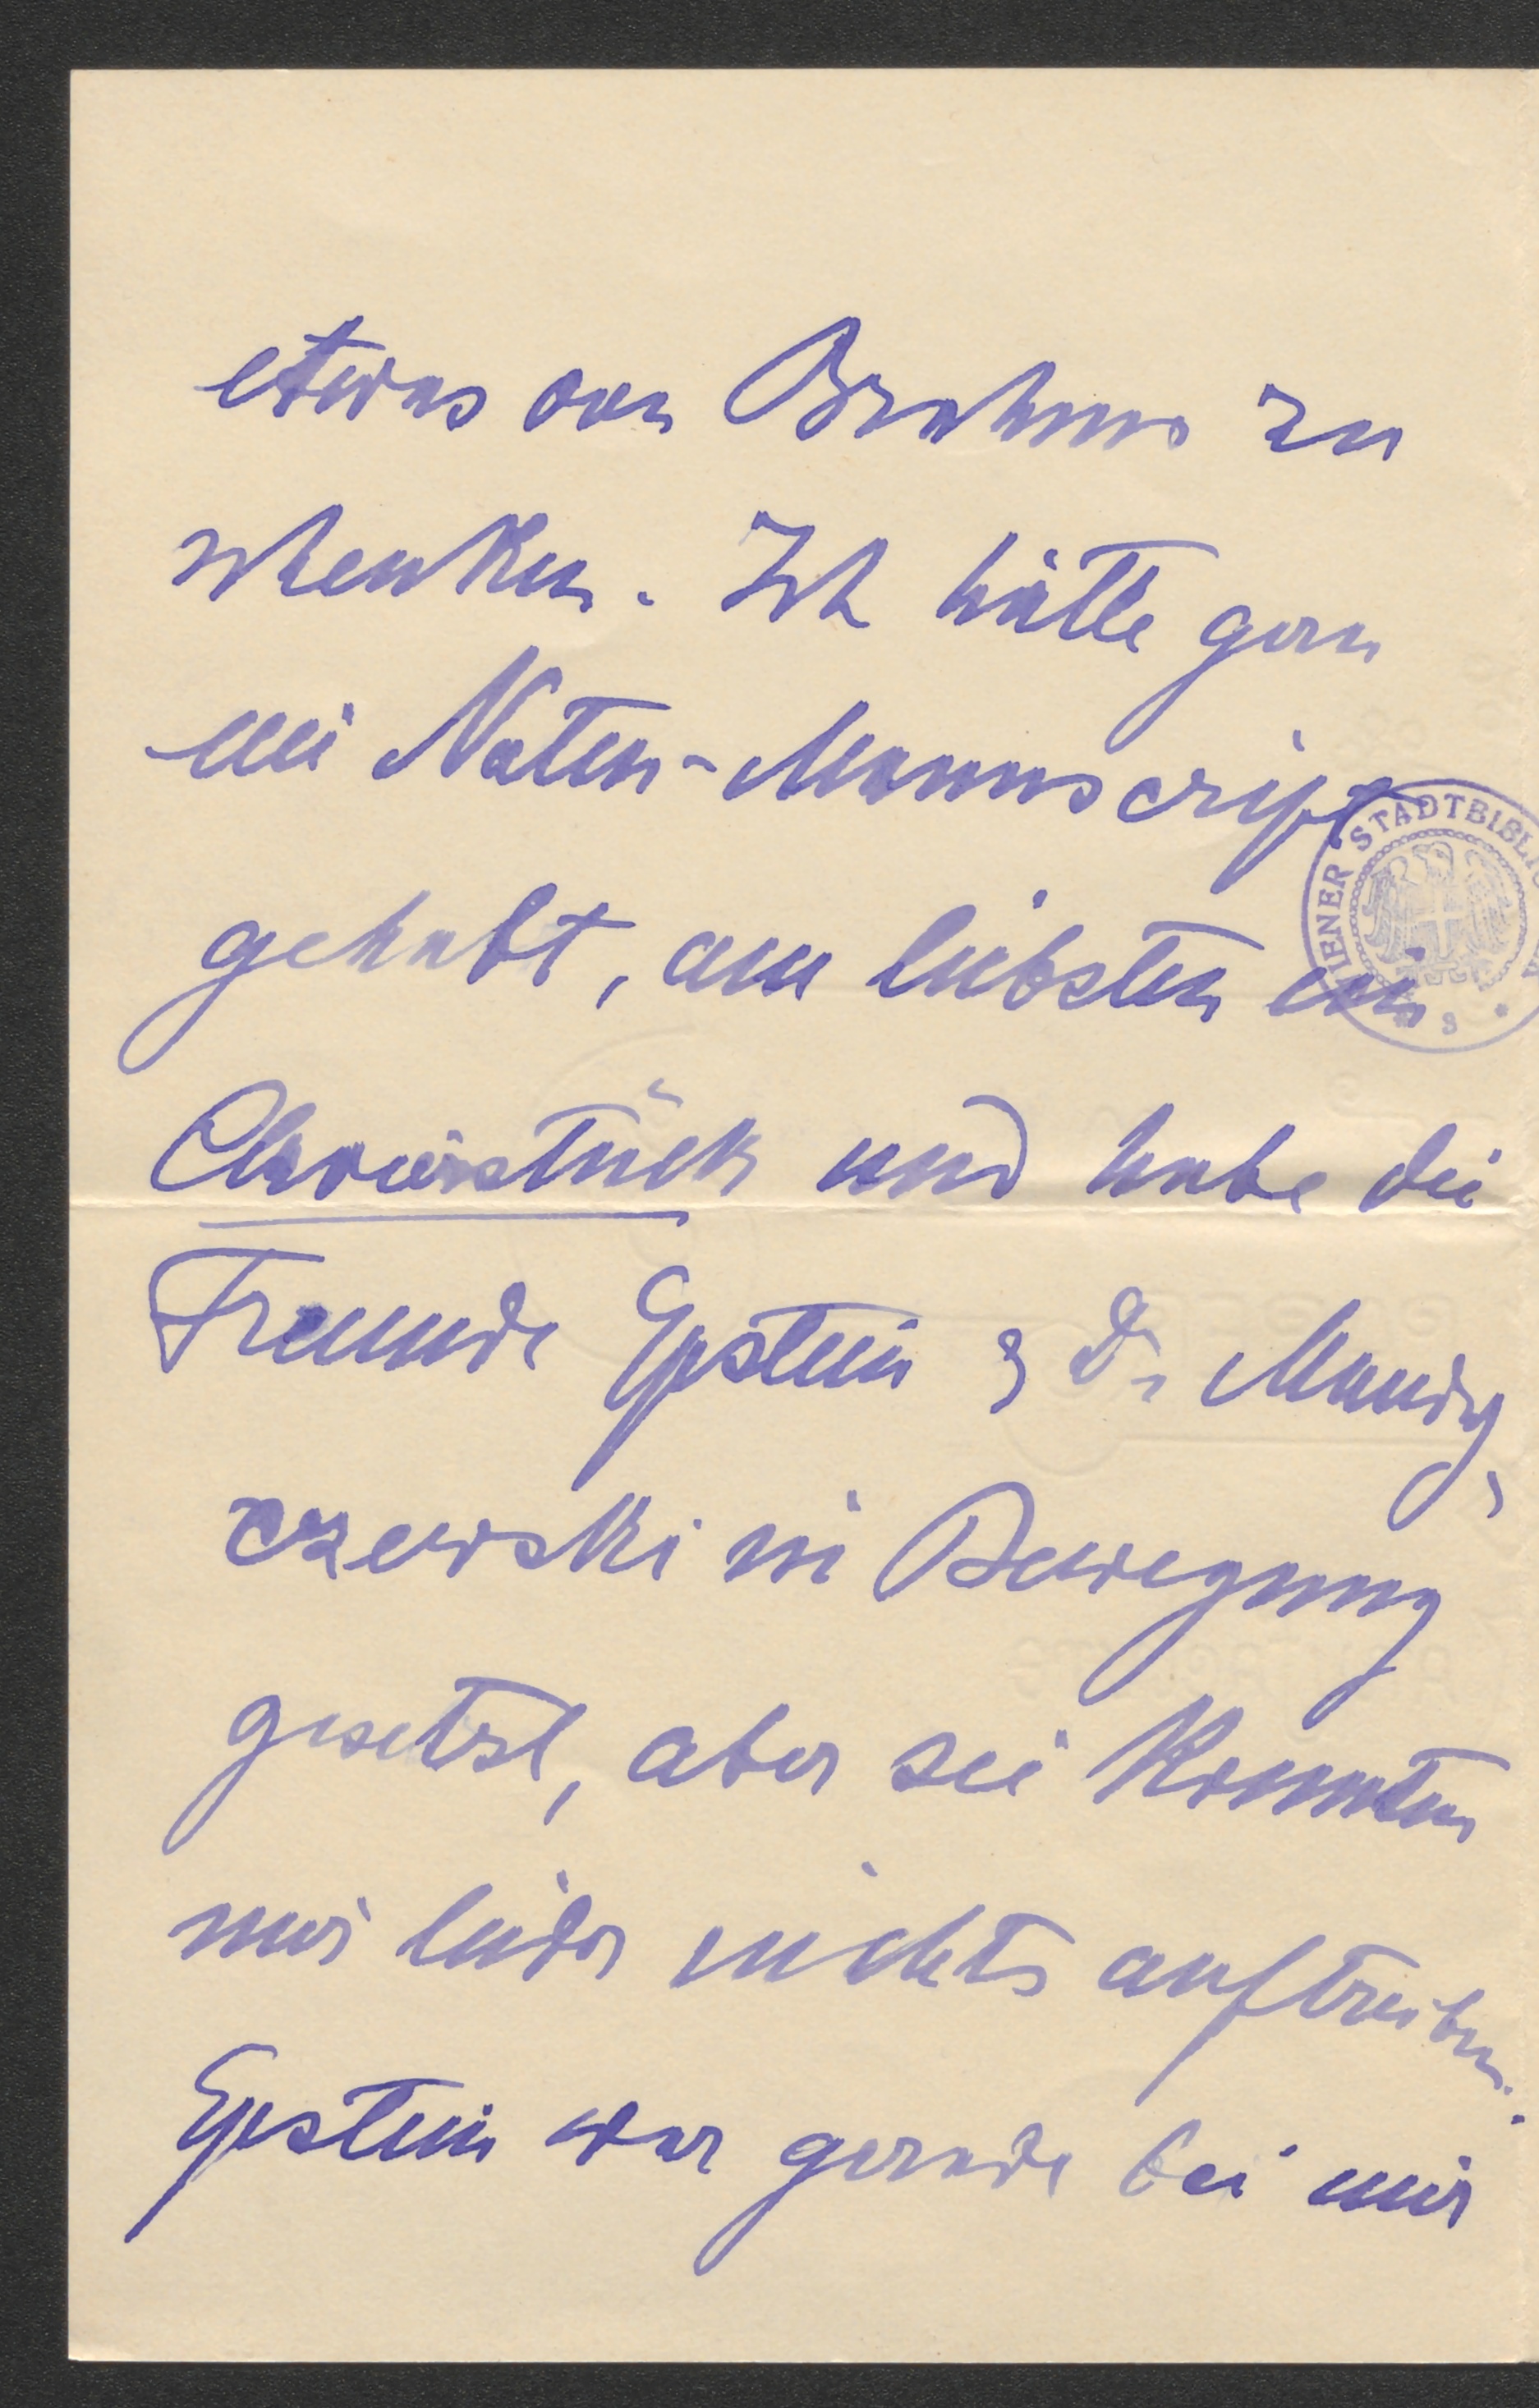 etwas von Brahms zu
schenken. Ich hätte gern
ein Noten-Manuscript
gehabt, am liebsten ein
Clavierstück und habe die
Freunde Epstein & Dr Mandy,
czewski in Bewegung
gesetzt, aber sie konnten
mir leider nichts auftreiben.
Epstein war gerade bei mir
WIENER STADTBIBLIO